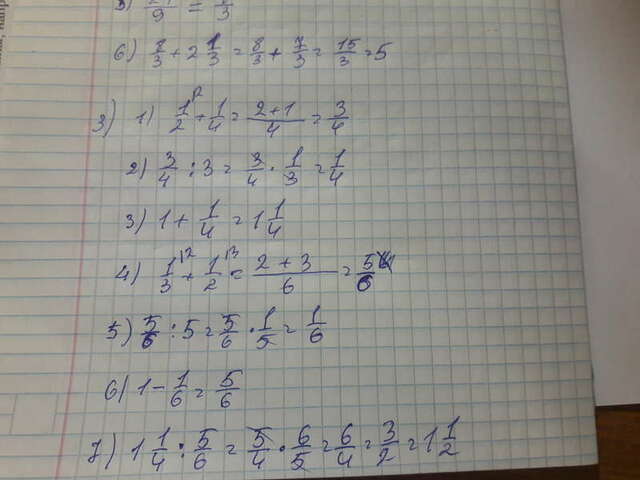 б) 8/3 + 2 1/3 = 8/3 + 7/3 = 15/3 = 5
3) 1) 1/2 + 1/4 = 2+1/4 = 3/4
2) 3/4 : 3 = 3/4 · 1/3 = 1/4
3) 1 + 1/4 = 1 1/4
4) 1/3 + 1/2 = 2+3/6 = 5/6
5) 5/6 : 5 = 5/6 · 1/5 = 1/6
6) 1 - 1/6 = 5/6
7) 1 1/4 : 5/6 = 5/4 · 6/5 = 6/4 = 3/2 = 1 1/2